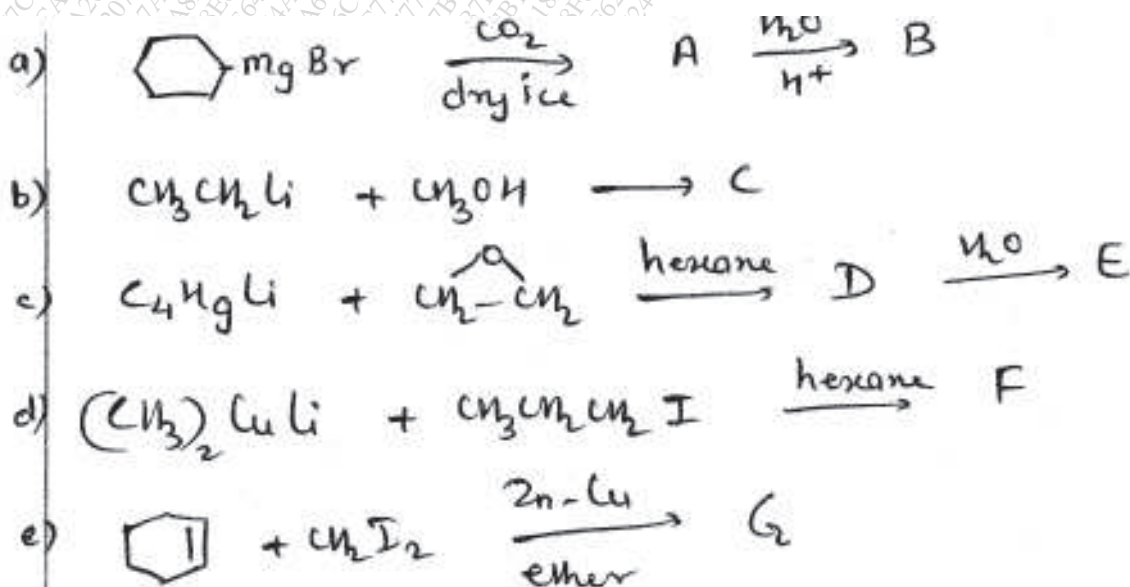 a) MgBr CO₂ dry ice A H₂O H⁺ B
b) CH₃CH₂Li + CH₃OH ⟶ C
c) C₄H₉Li + CH₂-CH₂ O hexane D H₂O E
d) (CH₃)₂CuLi + CH₃CH₂CH₂I hexane F
e) + CH₂I₂ Zn-Cu ether G